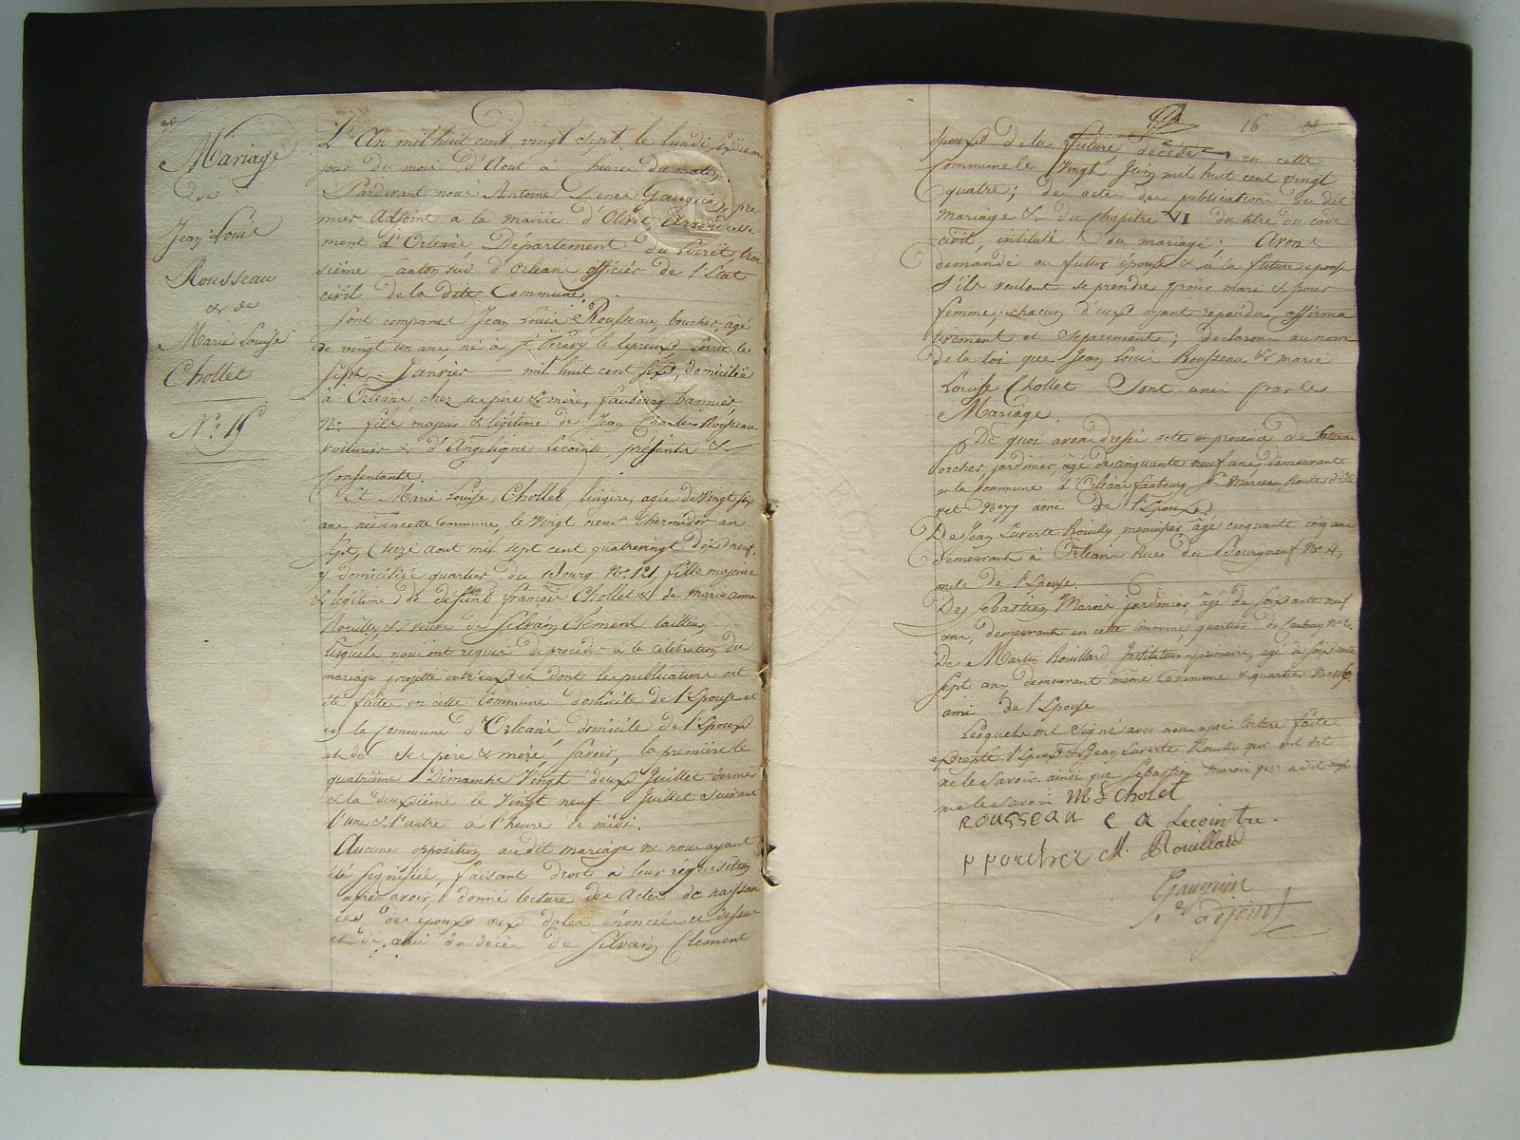 Mariage
de
Jean Louis
Rousseau
& de
Marie Louise
Chollet
N.° 15
L'An mil huit cent vingt sept, le lundi sixième
jour du mois d'Aout à heures du matin.
Pardevant nous Antoine pre-
mier Adjoint a la mairie d'Olivet, Arrondisse-
ment d'Orléans, Département du Loiret, troi
sième canton sud d'orleans officier de l'état
civil de la dite Commune.
Sont comparus Jean Louis Rousseau boucher, âgé
de vingt un ans, né à le
sept Janvier mil huit cent six, domicilié
à Orleans chez ses père & mère, faubourg bannier
N.° fils majeur & légitime de Jean Charles Rousseau
voiturier & d'Angelique Lecointe, présents &
consentants.
Et Marie Louise Chollet lingère, agée de vingt six
ans née en cette Commune, le vingt neuf thermidor an
sept, (seize aout mil sept cent quatrevingt dix neuf,
y domiciliée quartier du Bourg N.° 121, fille majeure
& légitime de défunt françois Chollet & de marie anne
Rouilly, & veuve de Silvain Clément tailleur,
lesquels nous ont requis de procéder à la célébration du
mariage projetté entr'eux et dont les publications ont
été faites en cette Commune domicile de l'Epouse et
en la Commune d'Orleans domicile de l'Epoux
et de ses père & mère, savoir, la première le
quatrième Dimanche Vingt deux Juillet dernier
et la deuxième le vingt neuf Juillet suivant
l'une & l'autre à l'heure de midi.
Aucune opposition audit mariage ne nous ayant
été signifiée, faisant droit a leur réquisition
après avoir donné lecture des Actes de naissan
ces des époux aux dates énoncées ci dessus
et de celui du décès de Silvain Clement
16
époux de la future décédé en cette
commune le vingt Juin mil huit cent vingt
quatre; des actes de publication du dit
mariage & du chapitre VI du titre du code
civil, intitulé du mariage; Avons
demandé au futur époux & à la future epouse
s'ils veulent se prendre pour mari & pour
femme; chacun d'eux ayant répondu affirma
tivement et séparément; declarons au nom
de la loi que Jean Louis Rousseau & marie
Louise Chollet Sont unis par le
Mariage.
De quoi avons dressé acte en présence de
Porcher, jardinier, âgé de cinquante neuf ans, demeurant
en la Commune d'Orléans faubourg S.t Marceau Route d'Oli
vet ami de l'Epoux.
De Jean Laverte Rouilly âgé cinquante cinq ans
demeurant à Orléans Rue du Bourgneuf N.° 4,
oncle de l'Epouse.
De Sébastien Marois jardinier, âgé de soixante neuf
ans, demeurant en cette commune, quartier
De Martin Rouillard Instituteur primaire, agé de soixante
sept ans demeurant même Commune & quartier
ami de l'Epouse
Lesquels ont signé avec nous après lecture faite
excepté l'Epoux & Jean Laverte Rouilly qui ont dit
ne le savoir ainsi que Sebastien Marois qui a dit aussi
ne le savoir M L Cholet
ROUSSEAU C A Lecointre.
P Porcher M. Rouillard
adjoint